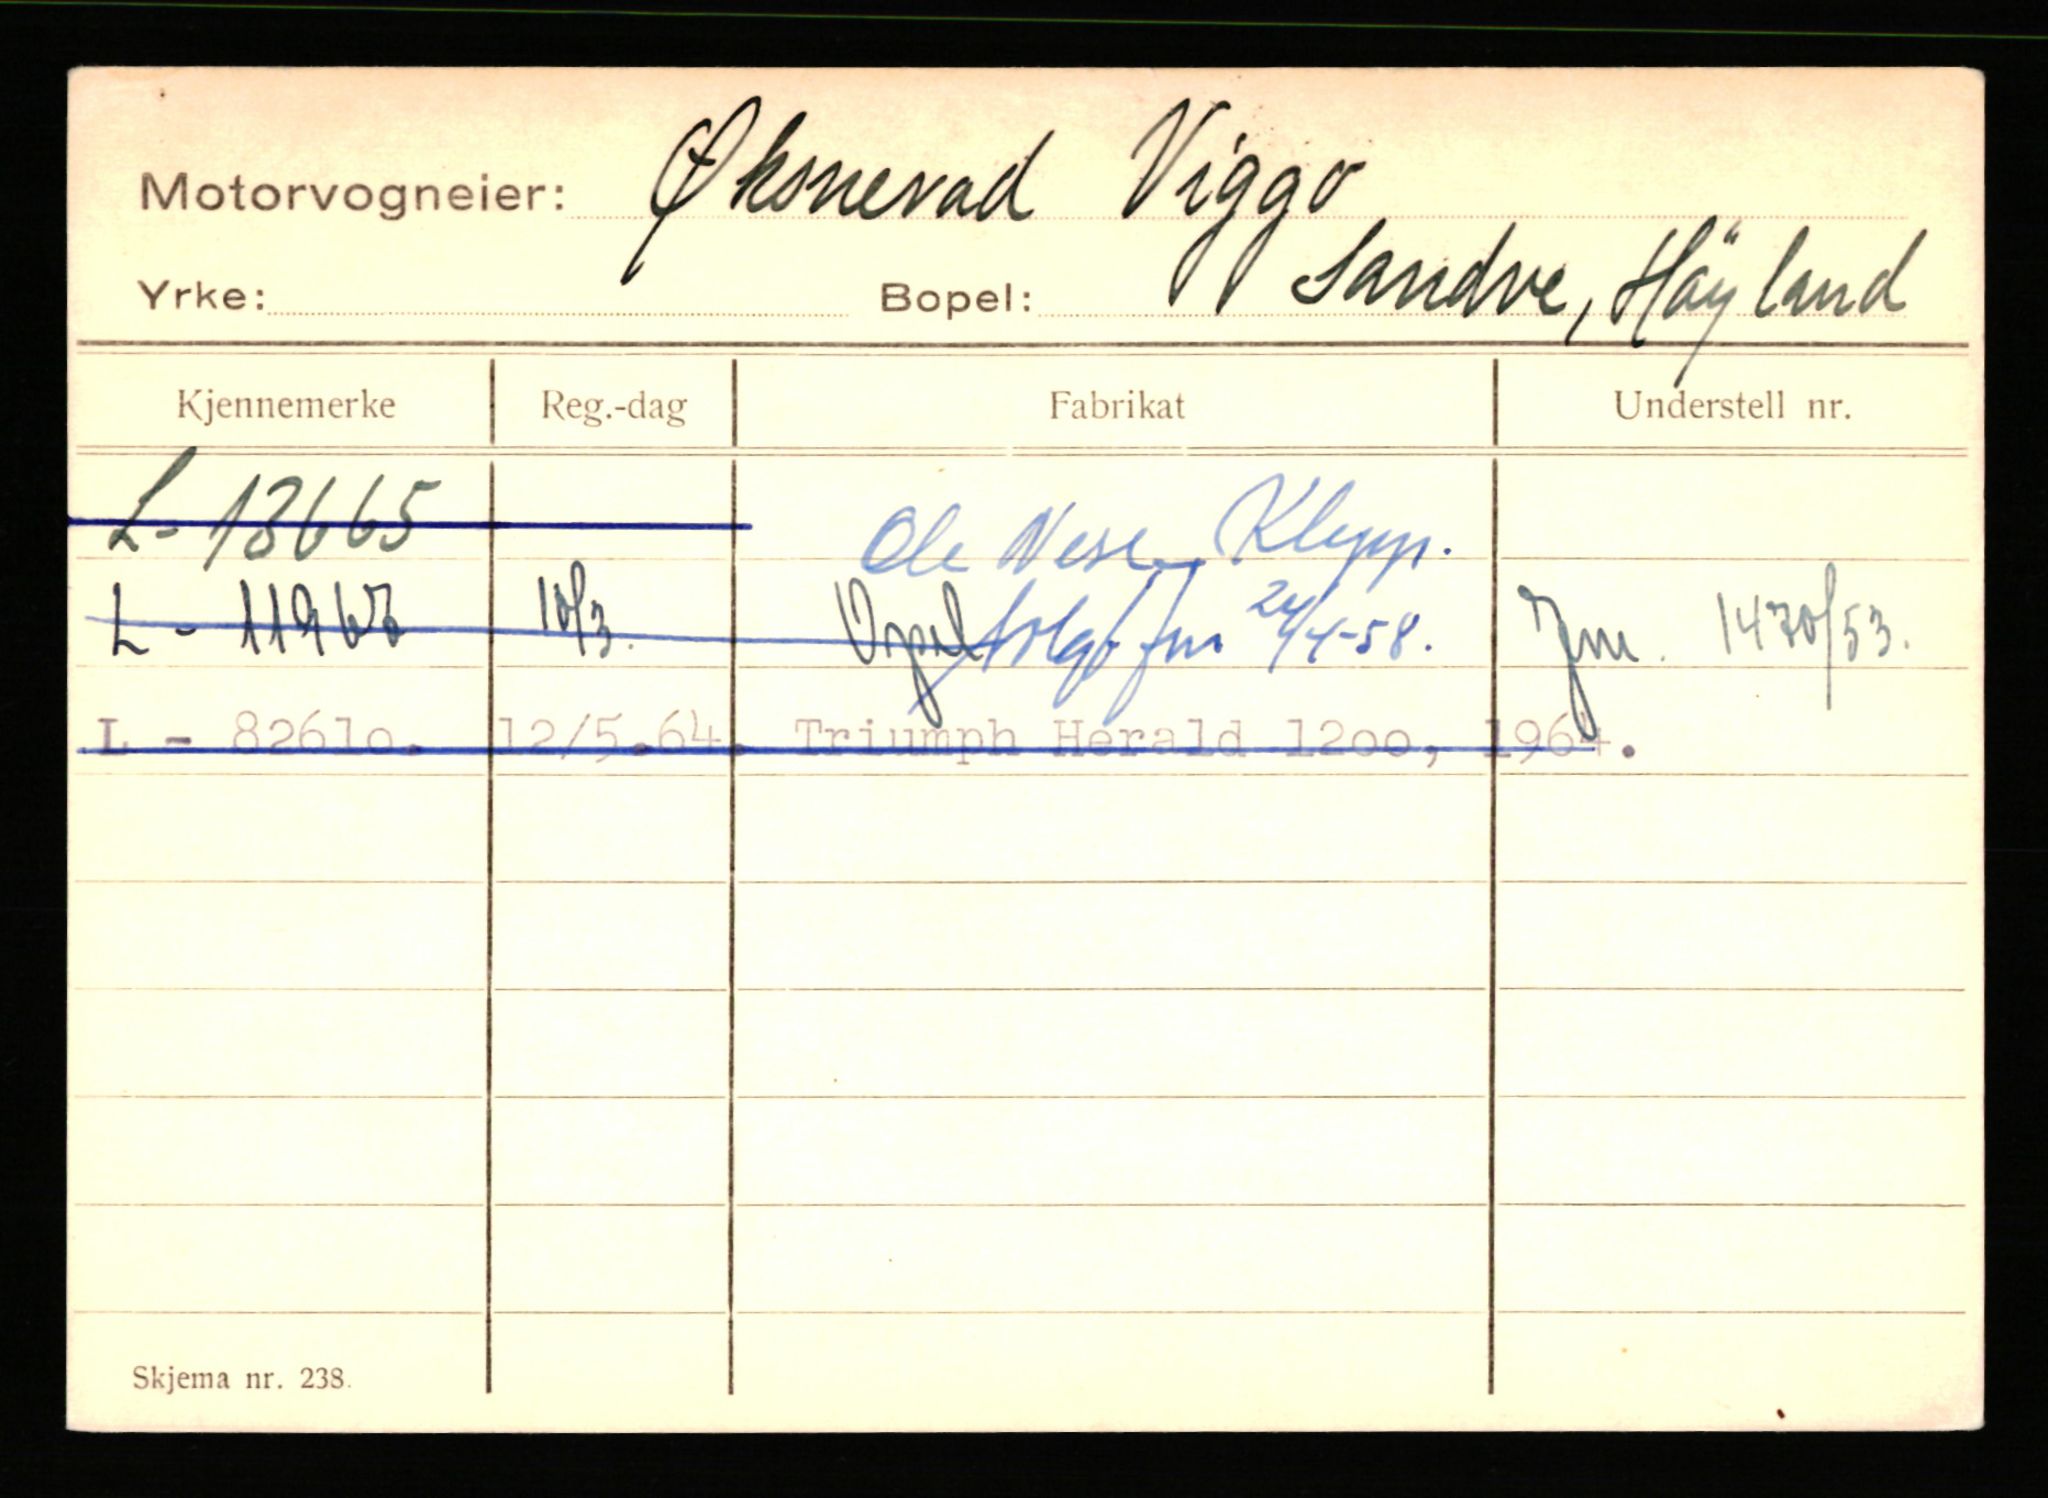 Motorvogneier: Øksnevad Viggo
Yrke: Bopel: Sandve, Høyland
Kjennemerke Reg.-dag Fabrikat Understell nr.
L - 13665 Ole Nese, Klepp.
L - 11967 10/3. Opel solgt fm 24/4-58. Jm. 1470/53.
L - 82610. 12/5.64. Triumph Herald 1200, 1964.
Skjema nr. 238.